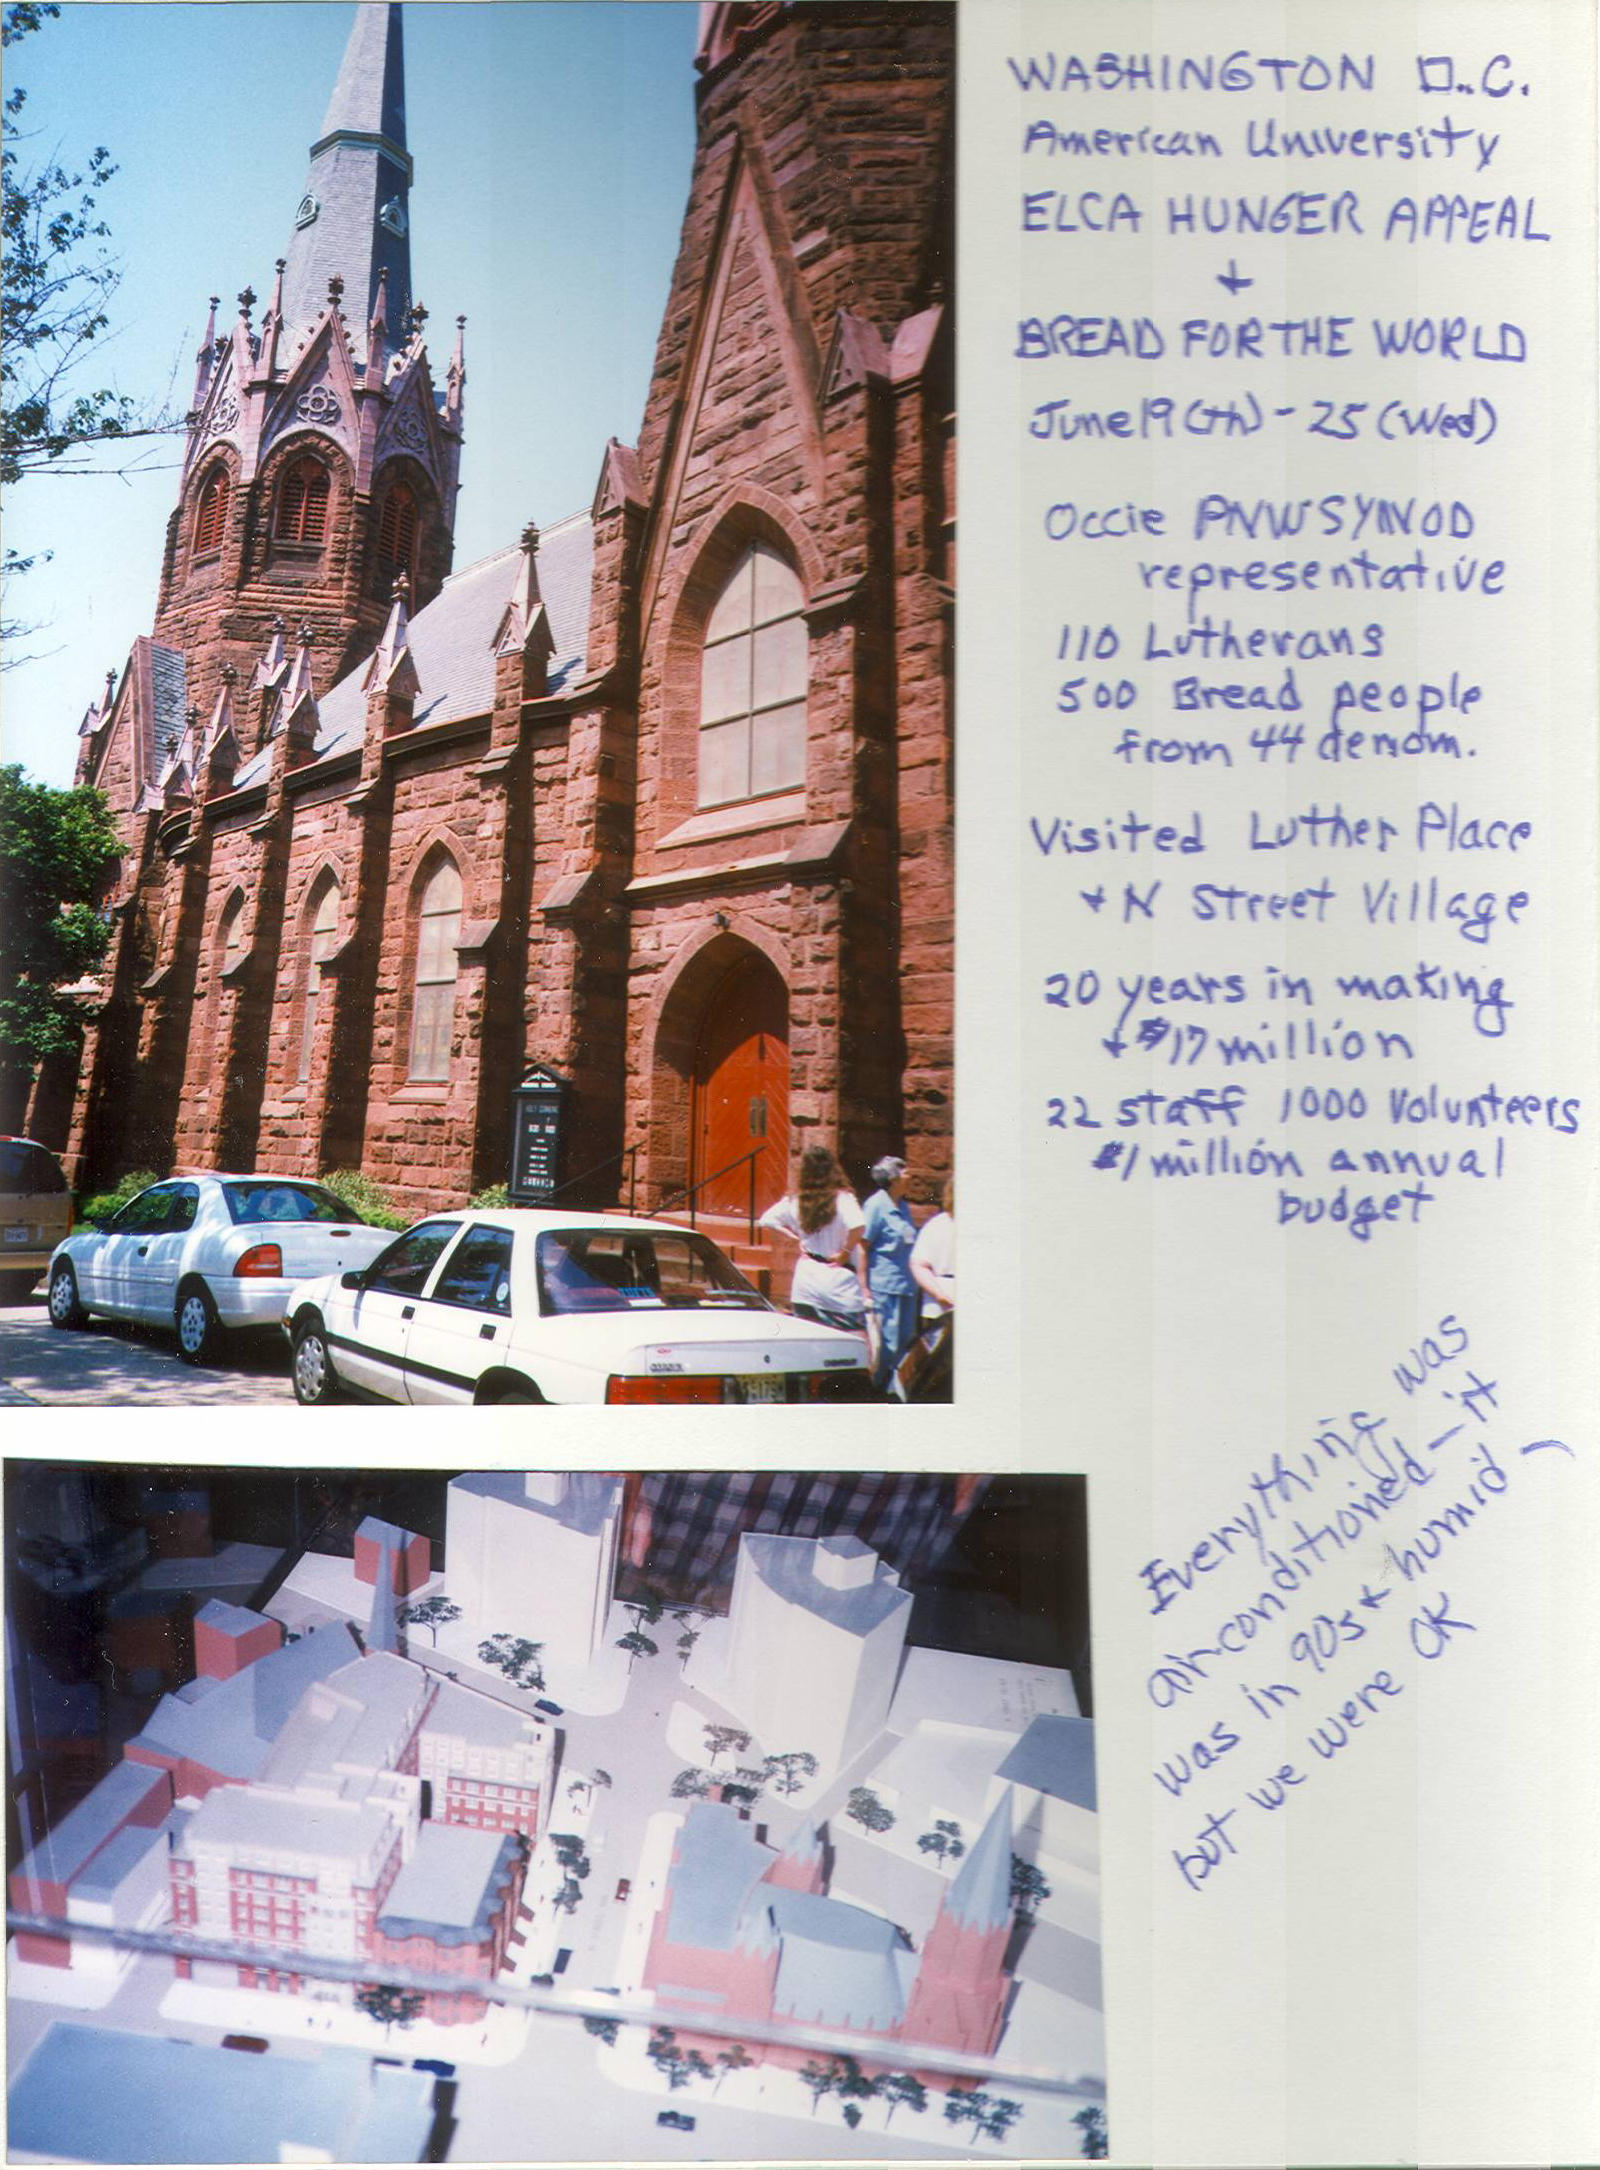 WASHINGTON D.C.
American University
ELCA HUNGER APPEAL
+
BREAD FOR THE WORLD
June 19 (Th) - 25 (Wed)
Occie PNW SYNOD
representative
110 Lutherans
500 Bread people
from 44 denom.
Visited Luther Place
+ N Street Village
20 years in making
+ $17 million
22 staff 1000 Volunteers
$1 million annual
budget
Everything was
airconditioned - it
was in 90s + humid -
but we were OK
MEMORIAL CHURCH